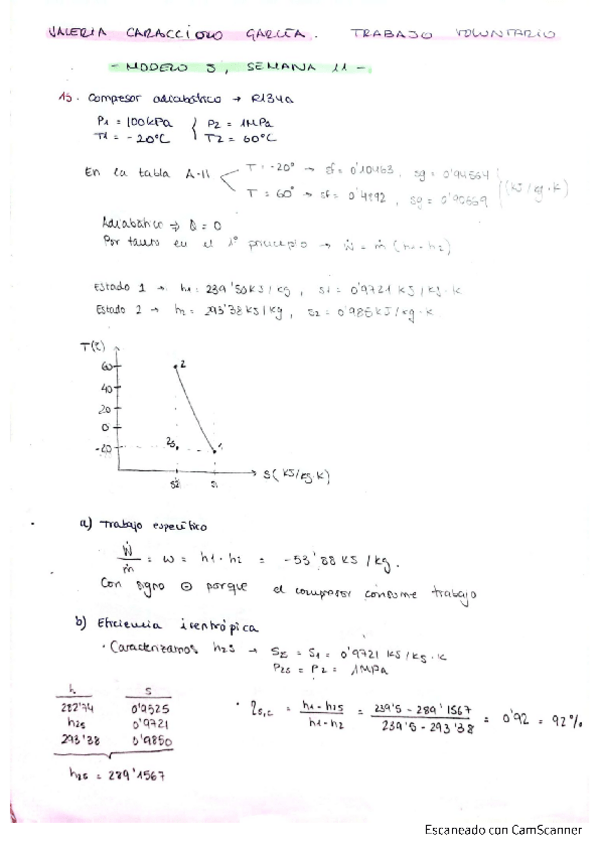 VALERIA CARACCIOLO GARCÍA. TRABAJO VOLUNTARIO
- MODELO 3, SEMANA 11 -
13. Compresor adiabático → R134a
P1 = 100kPa P2 = 1MPa
T1 = -20°C T2 = 60°C
En la tabla A-11
T = -20° → sf = 0'10463, sg = 0'94564
T = 60° → sf = 0'4892, sg = 0'90669
(KJ/kg·K)
Adiabático ⇒ Q = 0
Por tanto en el 1° principio → Ẇ = ṁ (h1-h2)
Estado 1 → h1 = 239'50KJ/kg, s1 = 0'9721 KJ/kg·K
Estado 2 → h2 = 293'38KJ/kg, s2 = 0'985KJ/kg·K
T(°C)
60
40
20
0
-20
2
2s
1
s2 s1
S(KJ/kg·K)
a) Trabajo específico
Ẇ/ṁ = w = h1-h2 = -53'88 KJ/kg.
Con signo ⊖ porque el compresor consume trabajo
b) Eficiencia isentrópica
· Caracterizamos h2s → S2 = S1 = 0'9721 KJ/kg·K
P2s = P2 = 1MPa
h s
282'74 0'9525
h2s 0'9721
293'38 0'9850
h2s = 289'1567
· ηs,c = (h1-h2s)/(h1-h2) = (239'5-289'1567)/(239'5-293'38) = 0'92 = 92%
Escaneado con CamScanner